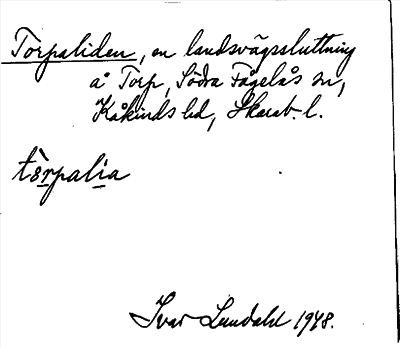 Torpaliden, en landsvägssluttning
å Torp, Södra Fågelås sn,
Kåkinds hd, Skarab. l.
tò̤rpalia
Ivar Lundahl 1948.